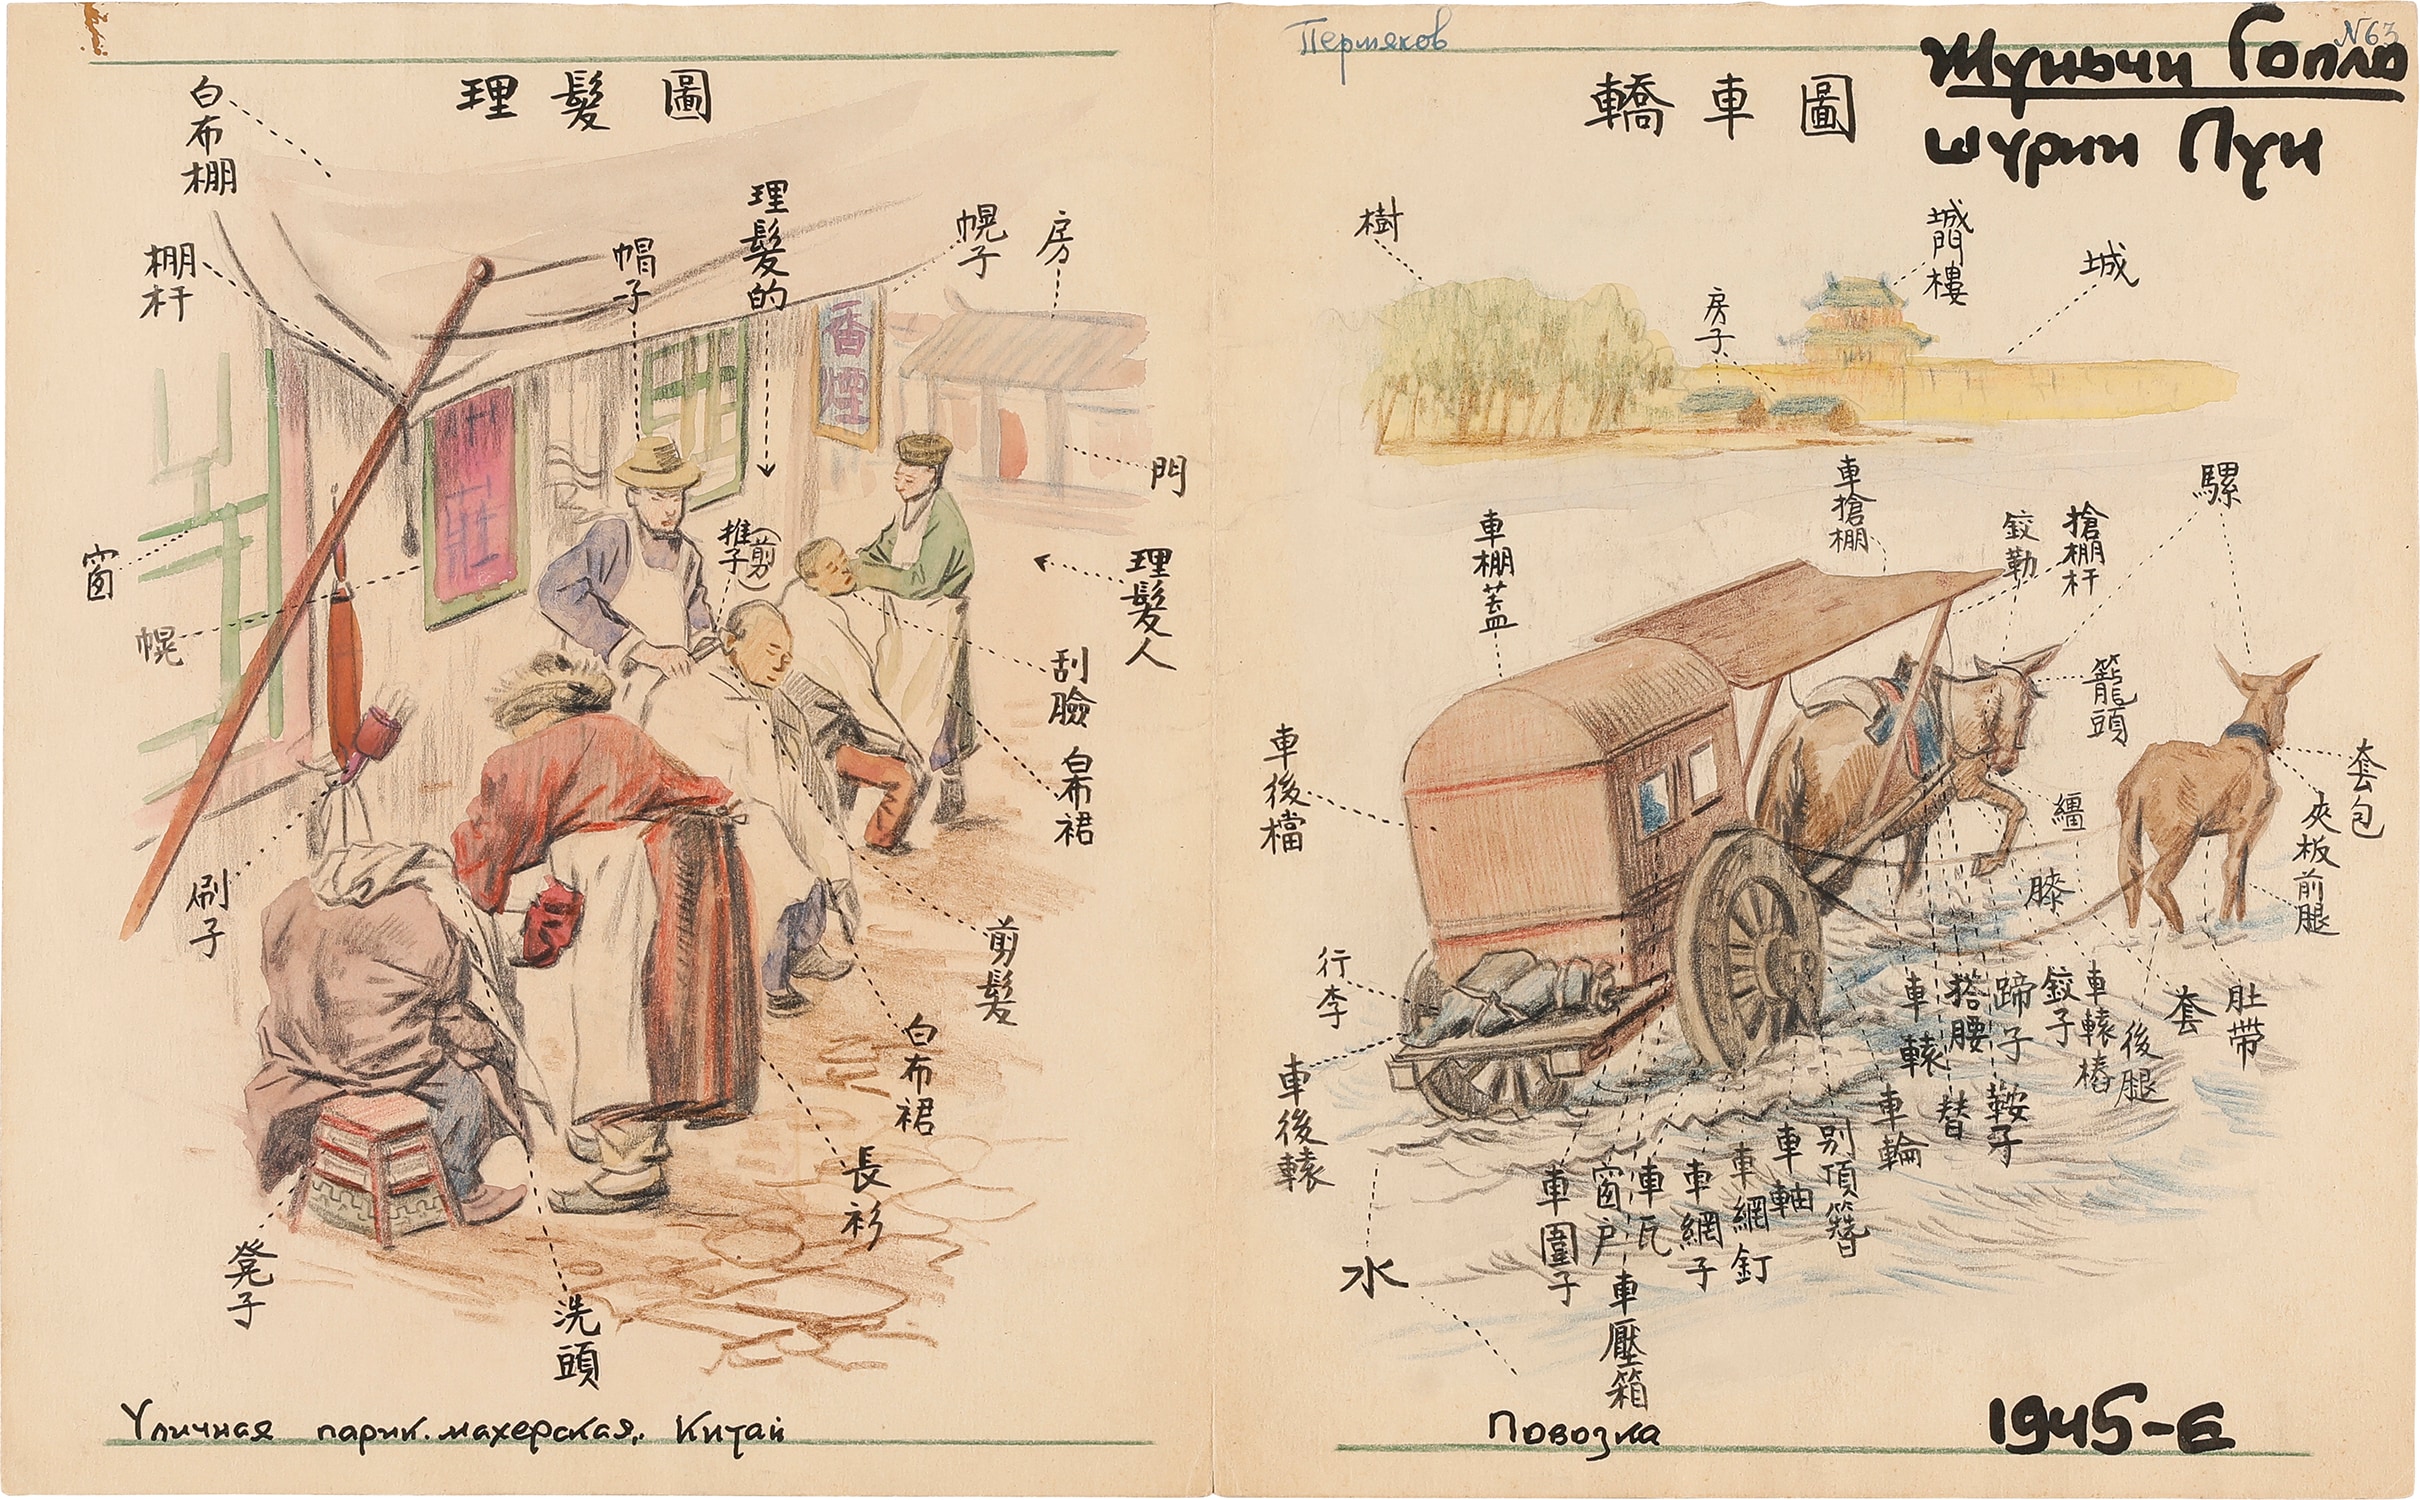 理髮圖
白布棚
棚杆
帽子
理髮的
幌子
房
香煙
門
窗
幌
推子(剪)
理髮人
刮臉
白布裙
刷子
剪髮
白布裙
長衫
凳子
洗頭
Уличная парик.махерская. Китай
Пермяков
N63
轎車圖
樹
城門樓
城
房子
車棚蓋
車搶棚
鉸勒
搶棚杆
騾
籠頭
車後檔
套包
夾板
前腿
繮
膝
行李
車後轅
車轅
搭腰
蹄子
鉸子
車轅樁
後腿
套
肚帶
車輪
替
鞍子
車圍子
窗戶
車瓦
車網子
車網釘
車軸
別頂簪
車壓箱
水
Повозка
1945-6